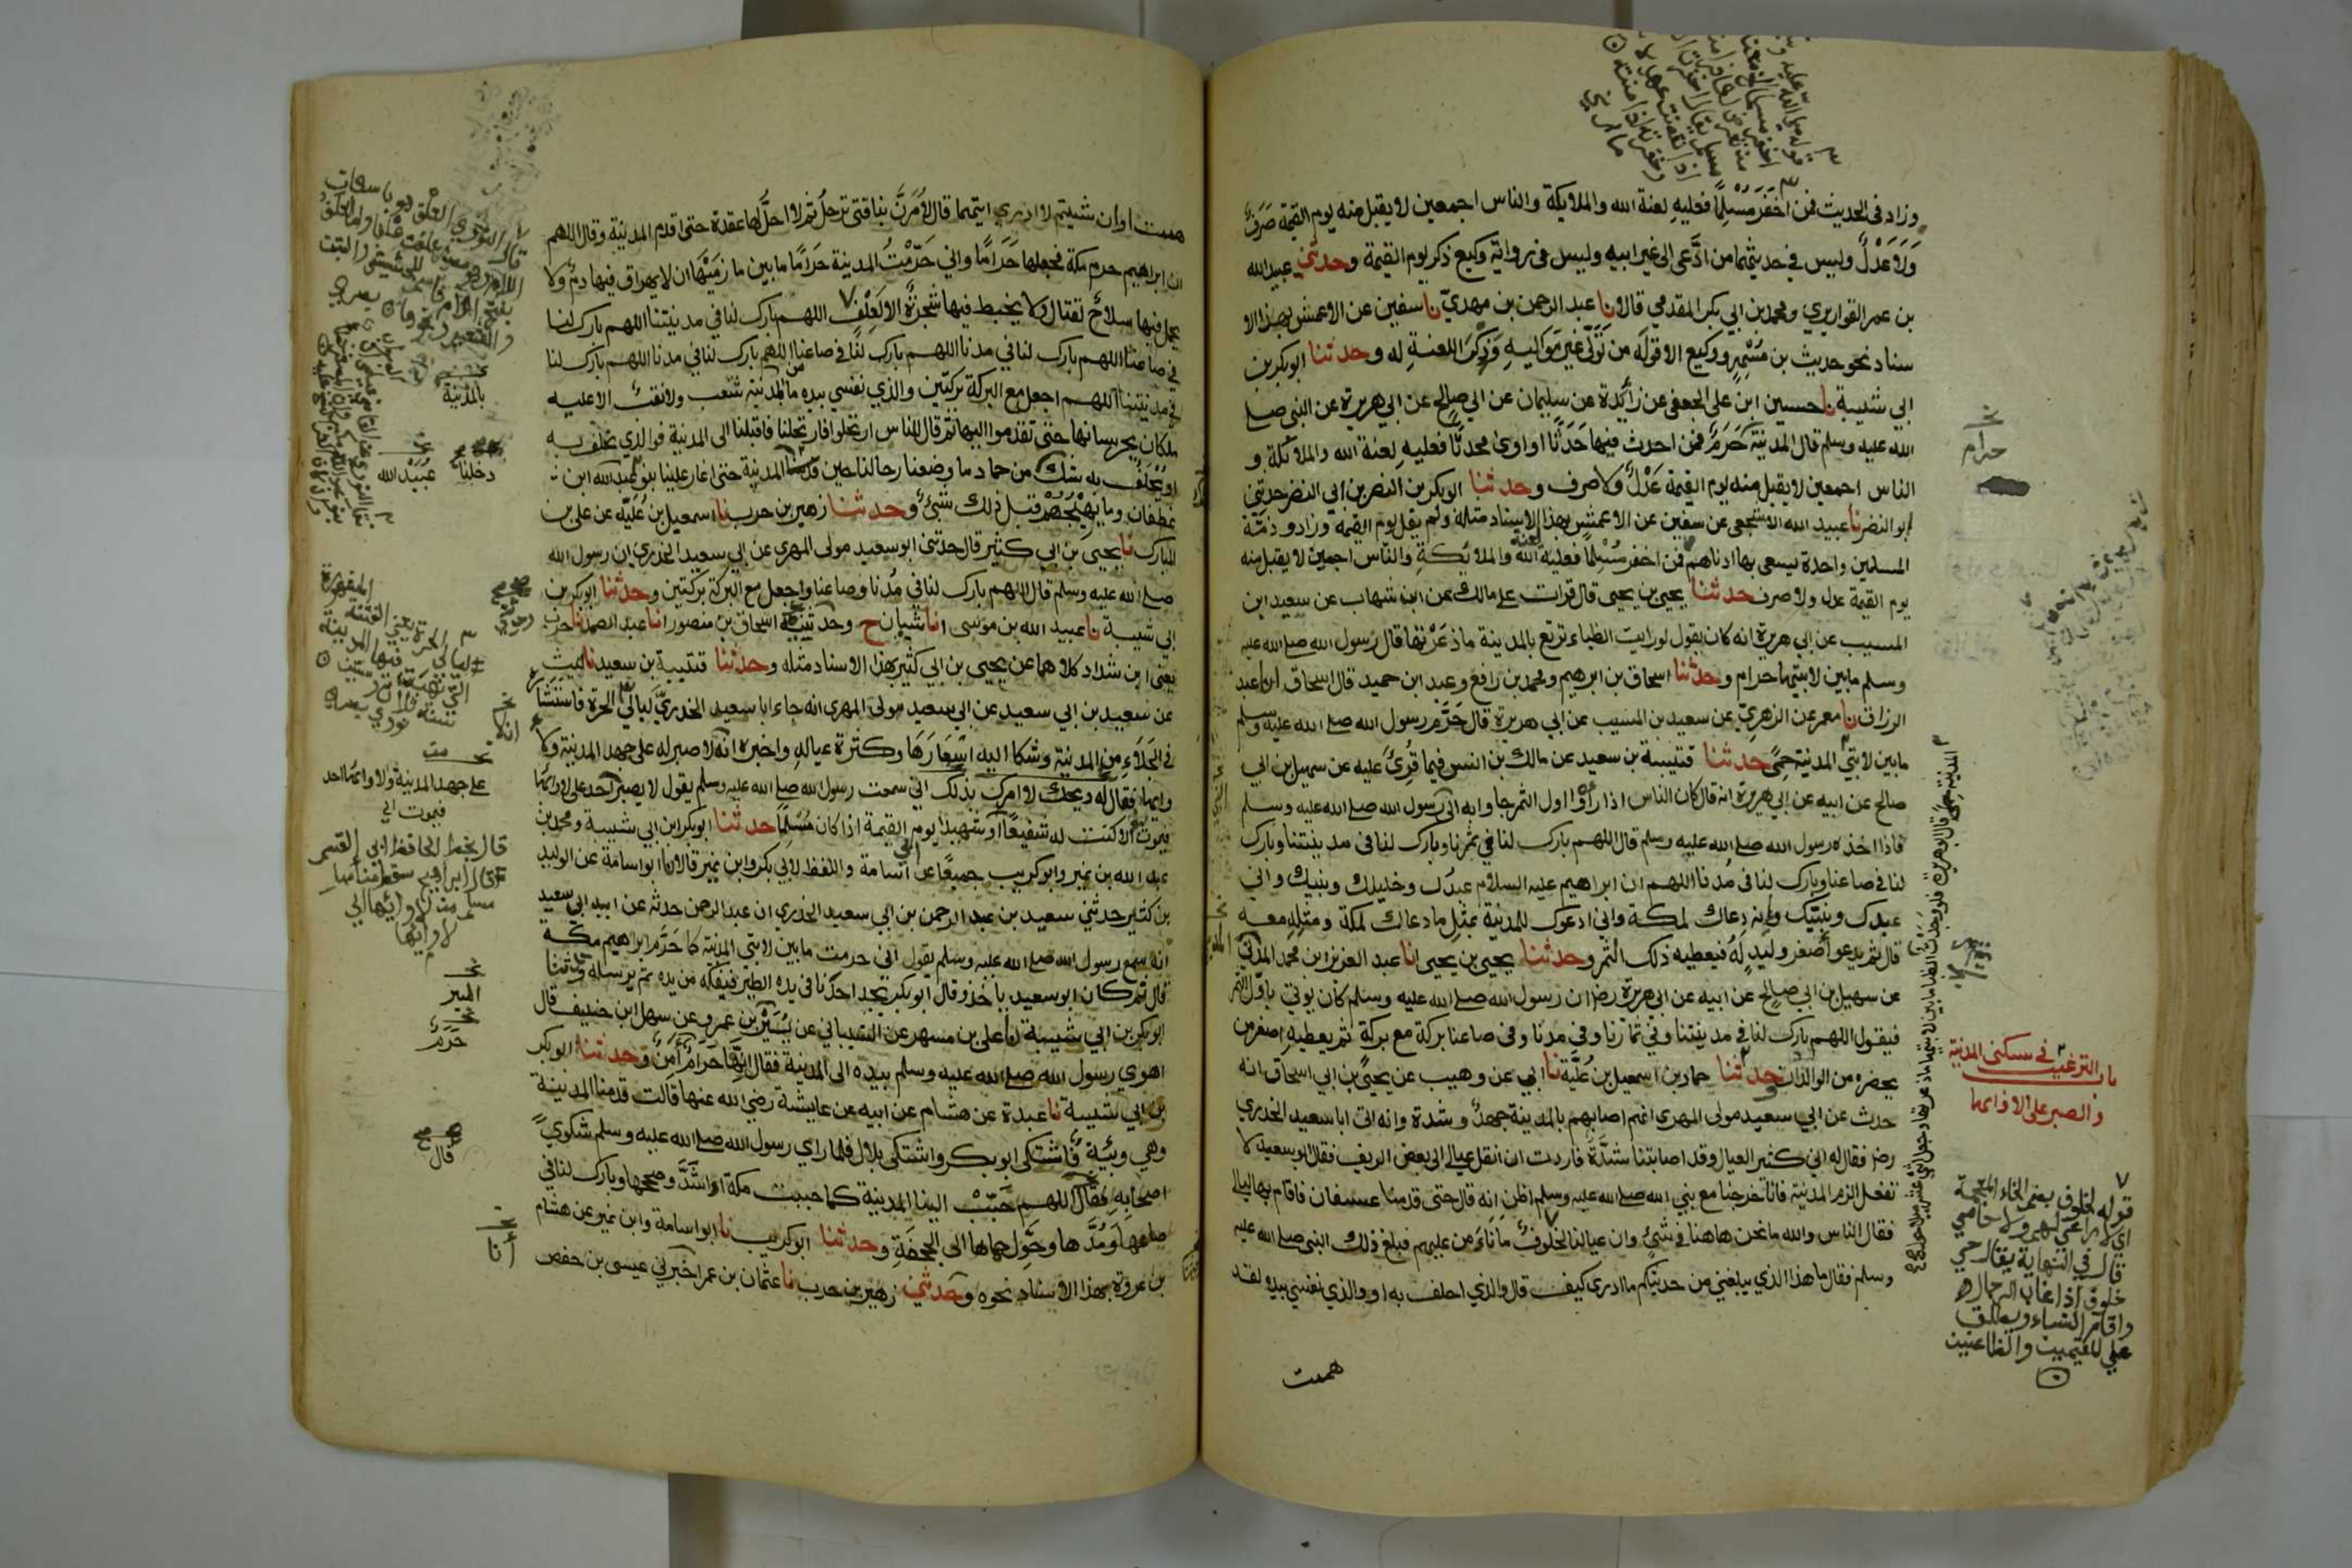 وزاد في الحديث فمن اخفر مسلما فعليه لعنة الله والملايكة والناس اجمعين لا يقبل منه يوم القيمة صرف
ولا عدل وليس في حديثهما من ادعى الى غير ابيه وليس في رواية وكيع ذكر يوم القيمة وحدثني عبيد الله
بن عمر القواريري ومحمد بن ابي بكر المقدمي قالا نا عبد الرحمن بن مهدي نا سفين عن الاعمش بهذا الا
سناد نحو حديث بن مسهر ووكيع الا قوله من تولى غير مواليه وذكر اللعنة له وحدثنا ابو بكر بن
ابي شيبة نا حسين ابن علي الجعفي عن زائدة عن سليمان عن ابي صالح عن ابي هريرة عن النبي صلى
الله عليه وسلم قال المدينة حرم فمن احدث فيها حدثا او اوى محدثا فعليه لعنة الله والملائكة و
الناس اجمعين لا يقبل منه يوم القيمة عدل ولا صرف وحدثنا ابو بكر بن النضر بن ابي النضر حدثني
ابو النضر نا عبيد الله الاشجعي عن سفين عن الاعمش بهذا الاسناد مثله ولم يقل يوم القيمة وزاد وذمة
المسلمين واحدة يسعى بها ادناهم فمن اخفر مسلما فعليه لعنة الله والملائكة والناس اجمعين لا يقبل منه
يوم القيمة عدل ولا صرف حدثنا يحيى بن يحيى قال قرات على مالك عن ابن شهاب عن سعيد ابن
المسيب عن ابي هريرة انه كان يقول لو رايت الظباء ترتع بالمدينة ما ذعرتها قال رسول الله صلى الله عليه
وسلم ما بين لابتيها حرام وحدثنا اسحاق بن ابرهيم ومحمد بن رافع وعبد ابن حميد قال اسحاق انا عبد
الرزاق نا معمر عن الزهري عن سعيد بن المسيب عن ابي هريرة قال حرم رسول الله صلى الله عليه وسلم
ما بين لابتي المدينة حمى حدثنا قتيبة بن سعيد عن مالك بن انس فيما قرئ عليه عن سهيل بن ابي
صالح عن ابيه عن ابي هريرة انه قال كان الناس اذا راوا اول الثمر جاوا به الى رسول الله صلى الله عليه وسلم
فاذا اخذه رسول الله صلى الله عليه وسلم قال اللهم بارك لنا في ثمرنا وبارك لنا في مدينتنا وبارك
لنا في صاعنا وبارك لنا في مدنا اللهم ان ابراهيم عليه السلام عبدك وخليلك ونبيك واني
عبدك ونبيك وانه دعاك لمكة واني ادعوك للمدينة بمثل ما دعاك لمكة ومثله معه
قال ثم يدعو اصغر وليد له فيعطيه ذلك الثمر وحدثنا يحيى بن يحيى انا عبد العزيز ابن محمد المدني
عن سهيل بن ابي صالح عن ابيه عن ابي هريرة رض ان رسول الله صلى الله عليه وسلم كان يوتي باول الثمر
فيقول اللهم بارك لنا في مدينتنا وفي ثمارنا وفي مدنا وفي صاعنا بركة مع بركة ثم يعطيه اصغر من
يحضره من الولدان وحدثنا حماد بن اسمعيل بن علية نا ابي عن وهيب عن يحيى بن ابي اسحاق انه
حدث عن ابي سعيد مولى المهري انهم اصابهم بالمدينة جهد وشدة وانه اتى ابا سعيد الخدري
رض فقال له اني كثير العيال وقد اصابتنا شدة فاردت ان انقل عيالي الى بعض الريف فقال ابو سعيد لا
تفعل الزم المدينة فانا خرجنا مع نبي الله صلى الله عليه وسلم اظن انه قال حتى قدمنا عسفان فاقام بها ليالي
فقال الناس والله ما نحن هاهنا في شيئ وان عيالنا لخلوف ما نامن عليهم فبلغ ذلك النبي صلى الله عليه
وسلم فقال ما هذا الذي يبلغني من حديثكم ما ادري كيف قال والذي احلف به او والذي نفسي بيده لقد
هممت
حرام
باب الترغيب في سكنى المدينة
والصبر على لاوائها
قوله لخلوف بضم الخاء المعجمة
اي لا راعي لهم ولا حامي
قال في النهاية يقال حي
خلوف اذا غاب الرجال
واقام النساء ويطلق
على المقيمين والظاعنين
هممت او ان شيتم لا ادري ايتهما قال لامرن بناقتي ترحل ثم لا احل لها عقدة حتى اقدم المدينة وقال اللهم
ان ابراهيم حرم مكة فجعلها حراما واني حرمت المدينة حراما ما بين مازميها ان لا يهراق فيها دم ولا
يحمل فيها سلاح لقتال ولا يخبط فيها شجرة الا لعلف اللهم بارك لنا في مدينتنا اللهم بارك لنا
في صاعنا اللهم بارك لنا في مدنا اللهم بارك لنا في صاعنا اللهم بارك لنا في مدنا اللهم بارك لنا
في مدينتنا اللهم اجعل مع البركة بركتين والذي نفسي بيده ما من المدينة شعب ولا نقب الا عليه
ملكان يحرسانها حتى تقدموا اليها ثم قال للناس ارتحلوا فارتحلنا فاقبلنا الى المدينة فوالذي نحلف به
او يحلف به شك من حماد ما وضعنا رحالنا حين قدمنا المدينة حتى اغار علينا بنو عبد الله ابن
غطفان وما يهيجهم قبل ذلك شيئ وحدثنا زهير بن حرب نا اسمعيل بن علية عن علي بن
المبارك نا يحيى بن ابي كثير قال حدثني ابو سعيد مولى المهري عن ابي سعيد الخدري ان رسول الله
صلى الله عليه وسلم قال اللهم بارك لنا في مدنا وصاعنا واجعل مع البركة بركتين وحدثنا ابو بكر بن
ابي شيبة نا عبيد الله بن موسى انا شيبان ح وحدثني اسحاق بن منصور انا عبد الصمد نا حرب
يعني ابن شداد كلاهما عن يحيى بن ابي كثير بهذا الاسناد مثله وحدثنا قتيبة بن سعيد نا ليث
عن سعيد بن ابي سعيد عن ابي سعيد مولى المهري انه جاء ابا سعيد الخدري ليالي الحرة فاستشاره
في الجلاء من المدينة وشكا اليه اسعارها وكثرة عياله واخبره انه لا صبر له على جهد المدينة ولا
وائها فقال له ويحك لا امرك بذلك اني سمعت رسول الله صلى الله عليه وسلم يقول لا يصبر احد على لاوائها
فيموت الا كنت له شفيعا او شهيدا يوم القيمة اذا كان مسلما حدثنا ابو بكر ابن ابي شيبة ومحمد بن
عبد الله بن نمير وابو كريب جميعا عن ابي اسامة واللفظ لابي بكر وابن نمير قالا نا ابو اسامة عن الوليد
بن كثير حدثني سعيد بن عبد الرحمن بن ابي سعيد الخدري ان عبد الرحمن حدثه عن ابيه ابي سعيد
انه سمع رسول الله صلى الله عليه وسلم يقول اني حرمت ما بين لابتي المدينة كما حرم ابراهيم مكة
قال ثم كان ابو سعيد ياخذ وقال ابو بكر يجد احدنا في يده الطير فيفكه من يده ثم يرسله وحدثنا
ابو بكر بن ابي شيبة نا علي بن مسهر عن الشيباني عن يسير بن عمرو عن سهل ابن حنيف قال
اهوى رسول الله صلى الله عليه وسلم بيده الى المدينة فقال انها حرام امن وحدثنا ابو بكر
بن ابي شيبة نا عبدة عن هشام عن ابيه عن عايشة رضي الله عنها قالت قدمنا المدينة
وهي وبيئة فاشتكى ابو بكر واشتكى بلال فلما راى رسول الله صلى الله عليه وسلم شكوى
اصحابه فقال اللهم حبب الينا المدينة كما حببت مكة او اشد وصححها وبارك لنا في
صاعها ومدها وحول حماها الى الجحفة وحدثنا ابو كريب نا ابو اسامة وابن نمير عن هشام
بن عروة بهذا الاسناد نحوه وحدثني زهير بن حرب نا عثمان بن عمر اخبرني عيسى بن حفص
بالمدينة
دخلنا
عبيد الله
انه
على جهد المدينة ولاوائها احد
فيموت الي
قال بخط الحافظ ابي القسم
حرم
قال
أنا